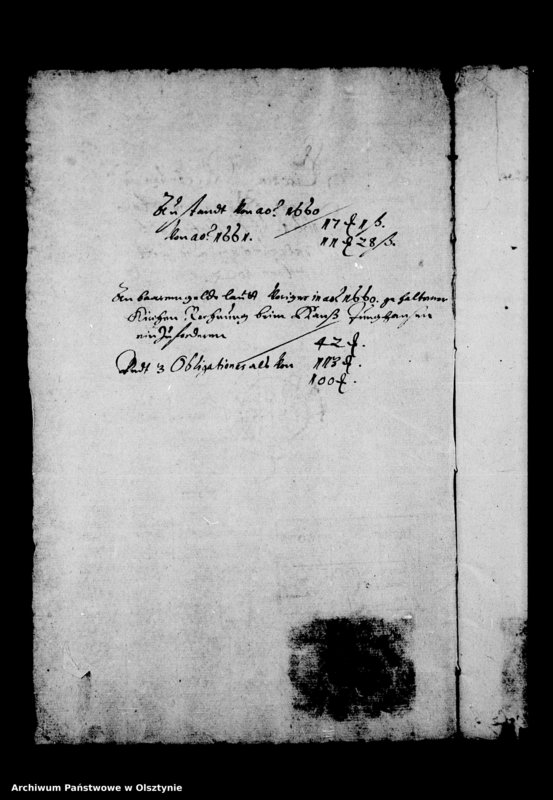 Zustandt von ao. 1660
17 f 1 ß.
von ao. 1661.
11 f 28 ß.
An baarem gelde lautt voriger in ao. 1660. gehaltener
Kirchen Rechnung beim
einzufordern
42 f.
3 Obligationes als von 113 f.
100 f.
Archiwum Państwowe w Olsztynie